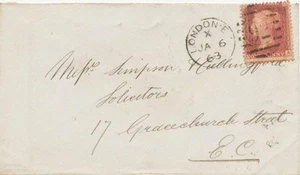 LONDON·E
X
JA 6
63
Messrs. Simpson, Hullingford
Solicitors
17 Gracechurch Street
E.C.